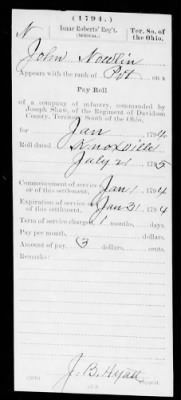 (1794.)
N Isaac Roberts' Reg't. Ter. So. of the Ohio.
(MILITIA.)
John Nowlin
Appears with the rank of Pvt. on a
Pay Roll
of a company of infantry, commanded by
Joseph Shaw, of the Regiment of Davidson
County, Territory South of the Ohio,
for Jan 1794.
Roll dated Knoxville
July 21 1795
Commencement of service or of this settlement, Jan 1 1794
Expiration of service or of this settlement, Jan 31 1794
Term of service charged, 1 months, days.
Pay per month, dollars, cents.
Amount of pay, 3 dollars, cents.
Remarks:
J. B. Hyatt